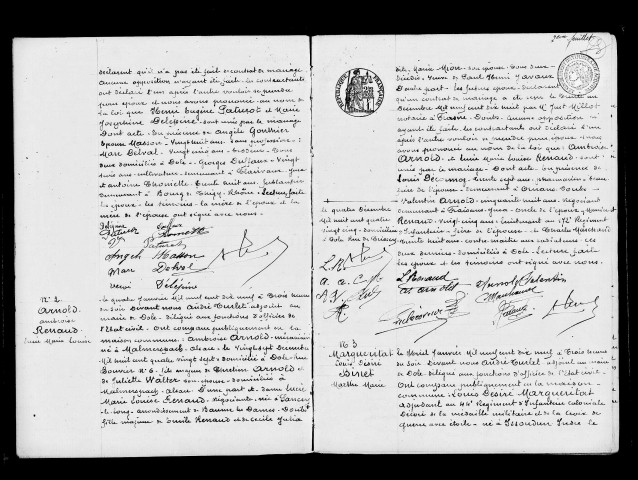 déclarent qu'il n'a pas été fait de contrat de mariage
aucune opposition n'ayant été faite. les contractants
ont déclaré l'un après l'autre vouloir se prendre
pour époux et nous avons prononcé au nom de
la loi que Henri Eugène Paturot et Marie
Joséphine sont unis par le mariage
Dont acte. En présence de Angèle Gonthier
épouse Masson. Vingt huit ans. sans profession.
Marc Delval. Vingt cinq ans. tous
deux domiciliés à Dole. Georges Vingt
ans. cultivateur. demeurant à Clairvaux. Jura
et Antoine Thomette. trente huit ans.
demeurant à Bourg de Thizy. Rhône. Lecture faite
les époux. les témoins. la mère de l'époux et la
mère de l'épouse ont signé avec nous.
Paturot
Angèle Masson
Marc Delval
N° 2
Arnold
Ambroise
Renaud
Lucie Marie Louise
le quatre Janvier mil neuf cent dix neuf à trois heures
du soir devant nous André Turlet adjoint au
maire de Dole. délégué aux fonctions d'officier de
l'État civil. Ont comparu publiquement en la
maison commune. Ambroise Arnold. mécanicien
né à Malmerspach. Alsace. le vingt sept
mil huit cent quatre vingt sept. domicilié à Dole. rue
Bouvier N° 6. fils majeur de Arnold et
de Juliette Walter son épouse. domiciliés à
Malmerspach. Alsace. D'une part et dame Lucie
Marie Louise Renaud. négociante. née à
le long. arrondissement de Baume les Dames. Doubs
fille majeure de Emile Renaud et de Cécile Julia
2ème feuillet
RÉPUBLIQUE FRANÇAISE
dile. Marie son épouse. tous deux
décédés. Veuve de Paul Henri Javaux
D'autre part. Les futurs époux déclarent
qu'un contrat de mariage a été reçu le trente un
Décembre mil neuf cent dix huit par Me Millot
notaire à Doubs. Aucune opposition n'
ayant été faite. les contractants ont déclaré l'un
après l'autre vouloir se prendre pour époux et nous
avons prononcé au nom de la loi que Ambroise
Arnold. et Lucie Marie Louise Renaud. sont
unis par le mariage. Dont acte. En présence de
Louis trente sept ans. pharmacien. beau
frère de l'épouse. demeurant à Ornans. Doubs
Valentin Arnold. cinquante huit ans. Négociant
demeurant à Fraisans. Jura. oncle de l'époux. Maurice
Renaud. Vingt cinq ans. lieutenant au 172e Régiment
d'Infanterie. frère de l'épouse. et Charles Marchand
trente huit ans. contre-maître aux radiateurs. ces
deux derniers. domiciliés à Dole. Lecture faite
les époux et les témoins ont signé avec nous.
le quatre Décembre
mil huit cent quatre
vingt cinq. domiciliée
à Dole rue de
L. Renaud
A. Arnold
Arnold Valentin
Marchand
N° 3
Marqueritat
Louis Désiré
Binet
Marthe Marie
le huit Janvier mil neuf cent dix neuf à trois heures
du soir devant nous André Turlet adjoint au maire
de Dole délégué aux fonctions d'officier de l'État civil.
Ont comparu publiquement en la maison
commune. Louis Désiré Marqueritat
adjudant au 44e Régiment d'Infanterie coloniale
Décoré de la médaille militaire et de la croix de
guerre avec étoile. né à Issoudun Indre le